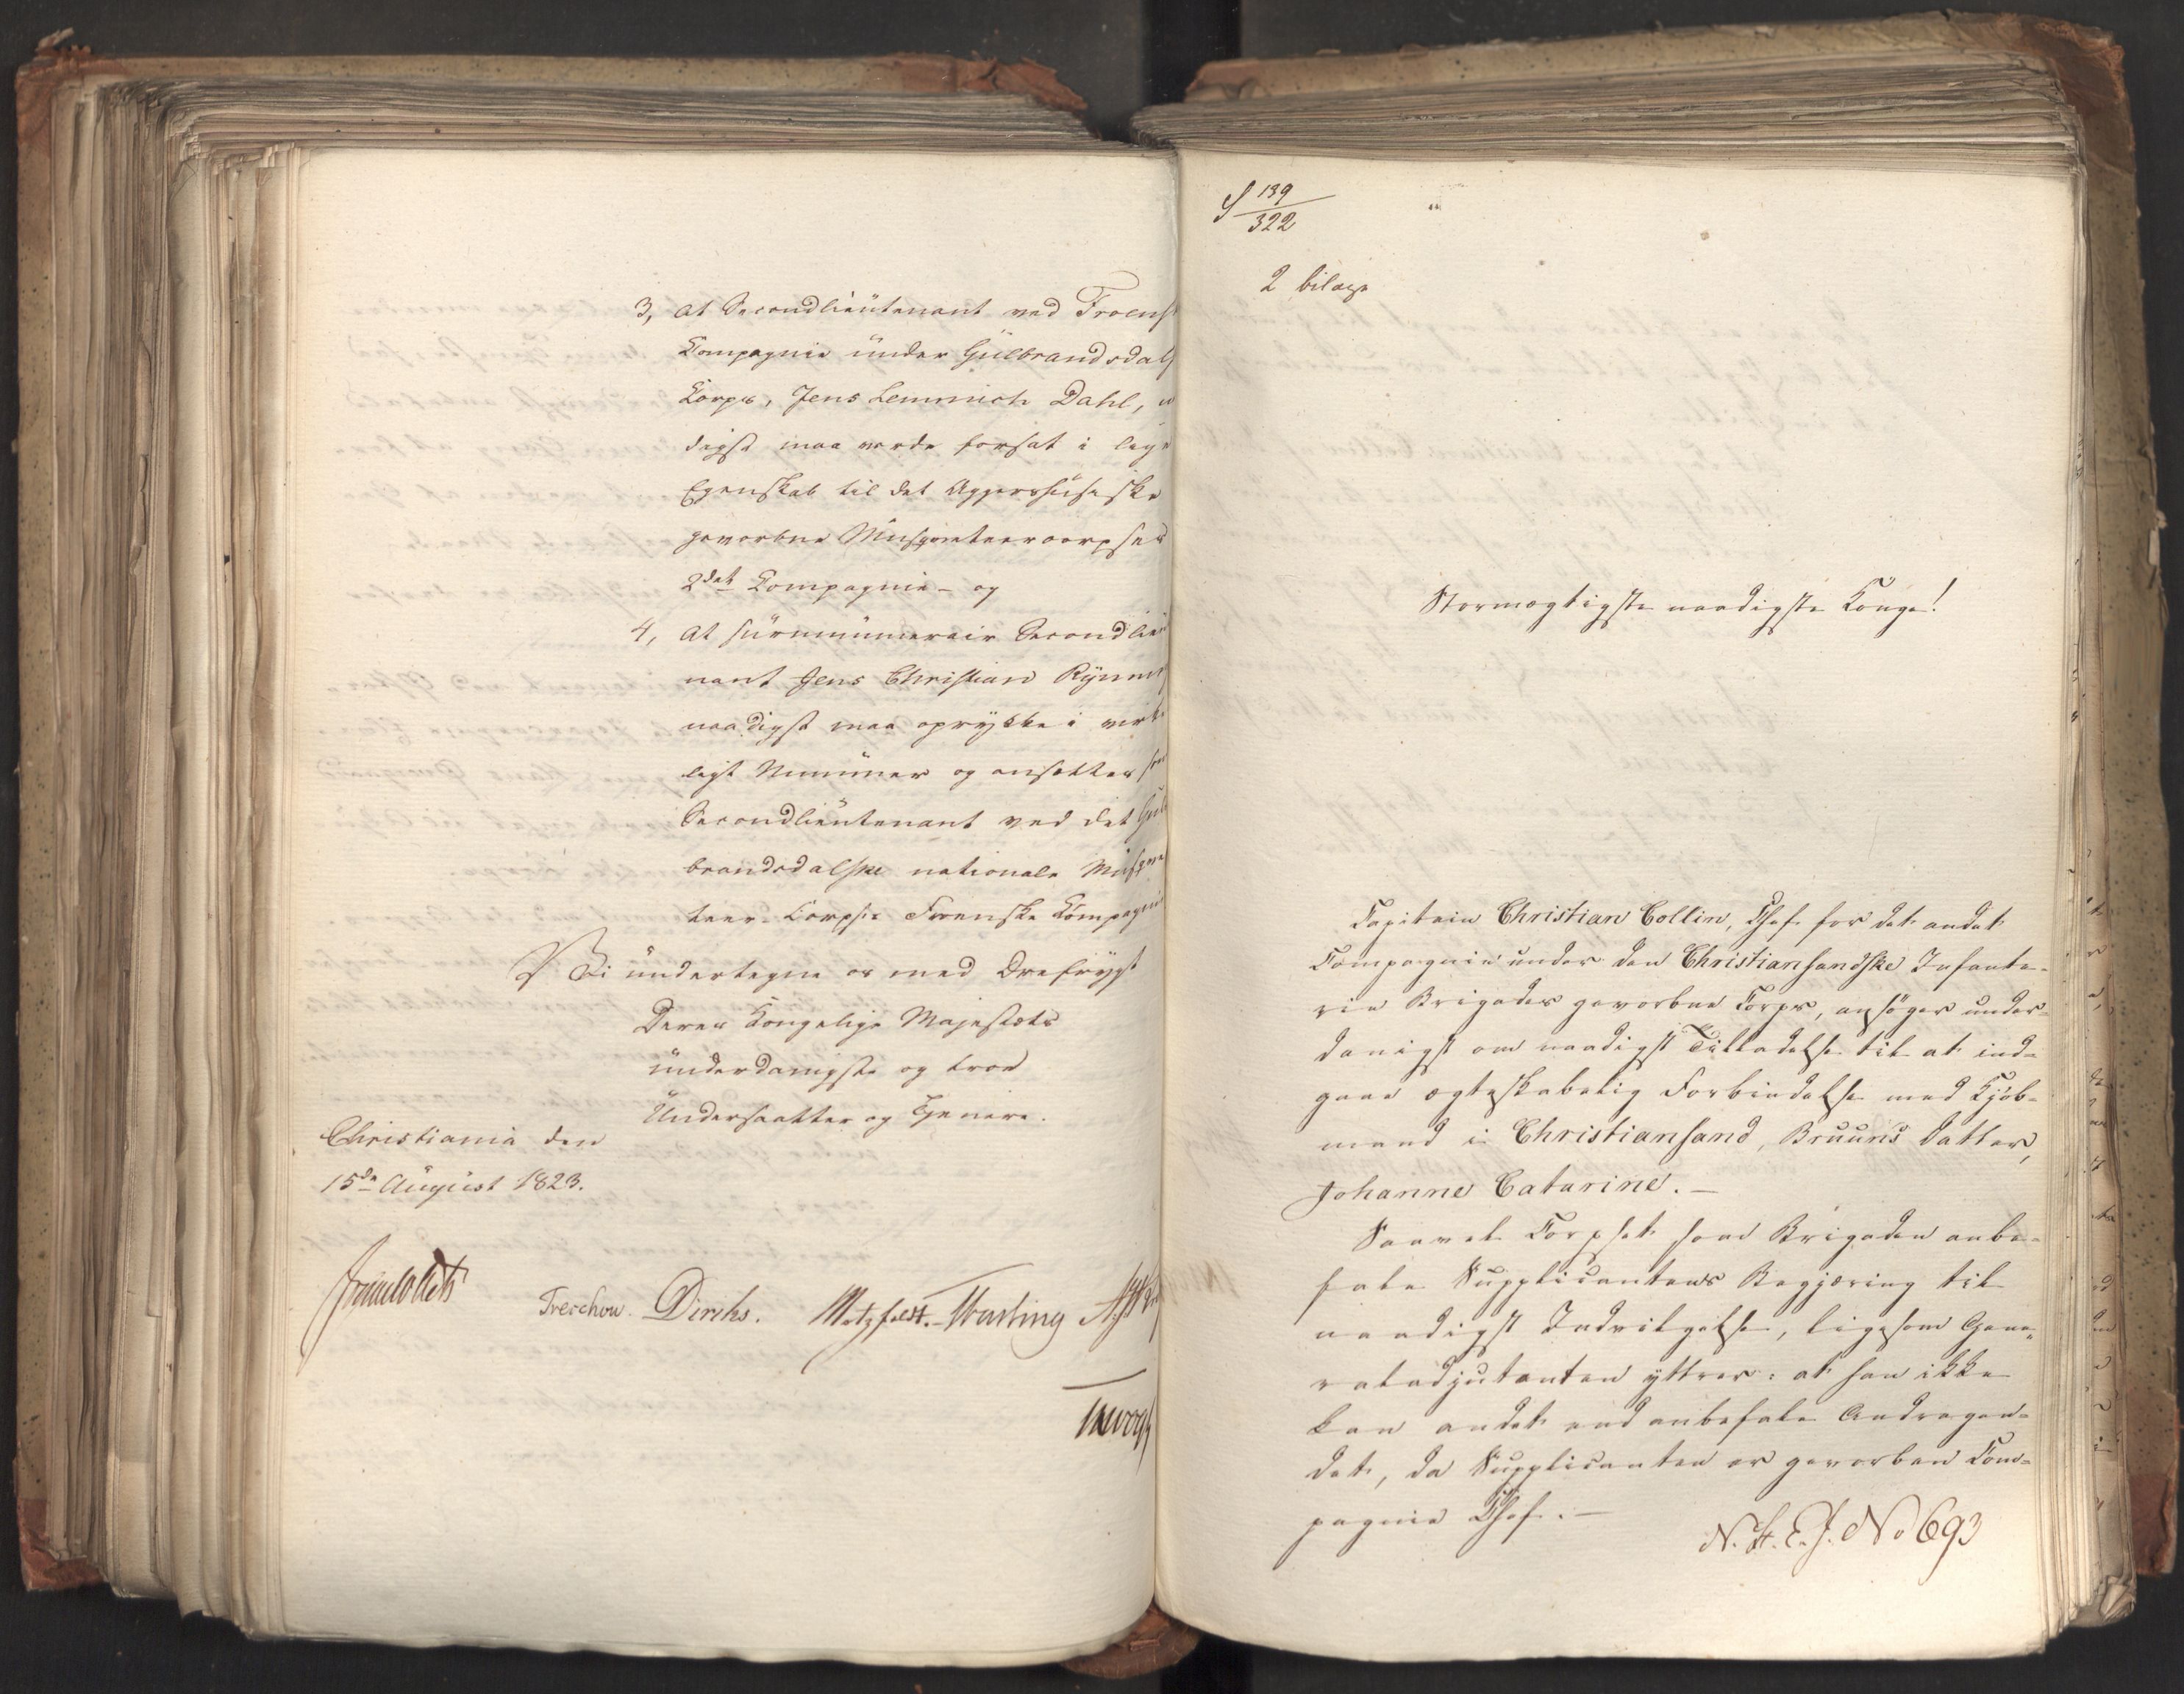 3, at Secondlieutenant ved Froensk
Compagnie under Gulbrandsdalsk
Corps, Jens Lemmich Dahl, 
digst maa vorde forsat i lige
Egenskab til det Aggershusiske
gevorbne Musqueteercorpses
2det Compagnie - og
4, at surnummerair Secondlieu
nant Jens Christian Rynning
naadigst maa oprykke i virke
ligt Nummer og ansættes som
Secondlieutenant ved det Gul
brandsdalske nationale Musque
teer-Corpses Froenske Compagnie
Vi undertegne os med Ærefrygt
Deres Kongelige Majestæts
underdanigste og troe
Undersaatter og Tjenere.
Christiania den
15de August 1823.
Treschow. Diriks. Motzfeldt.
S 139
322
2 bilage
Stormægtigste naadigste Konge!
Capitain Christian Collin, Chef for det andet
Compagnie under den Christiansandske Infante-
rie Brigades gevorbne Corps, ansøger under-
danigst om naadigst Tilladelse til at ind-
gaae ægteskabelig Forbindelse med Kjøb-
mand i Christiansand, Bruuns Datter,
Johanne Catarine. -
Saavel Corpset som Brigaden anbe-
fale Supplicantens Begjæring til
naadigst Indvilgelse, ligesom Gene-
raladjutanten yttrer: at han ikke
kan andet end anbefale Andragen-
det, da Supplicanten er gevorben Com-
pagnie Chef. -
N. H. E. J. No 693